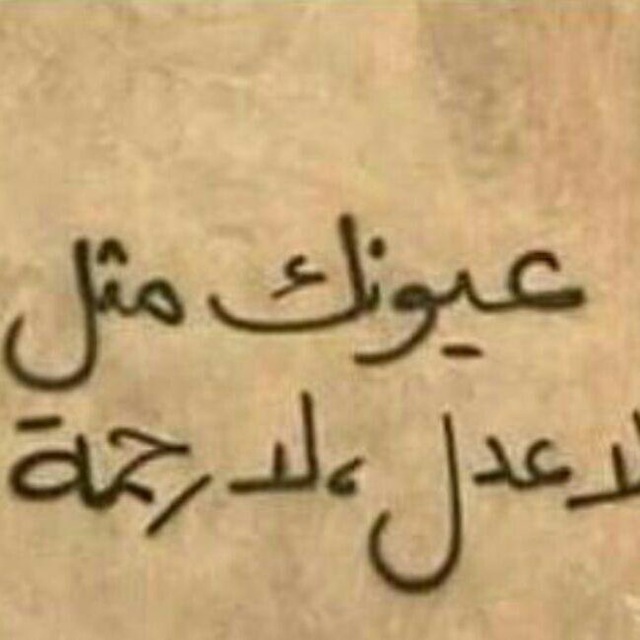 عيونك مثل
لا عدل ،لا رحمة